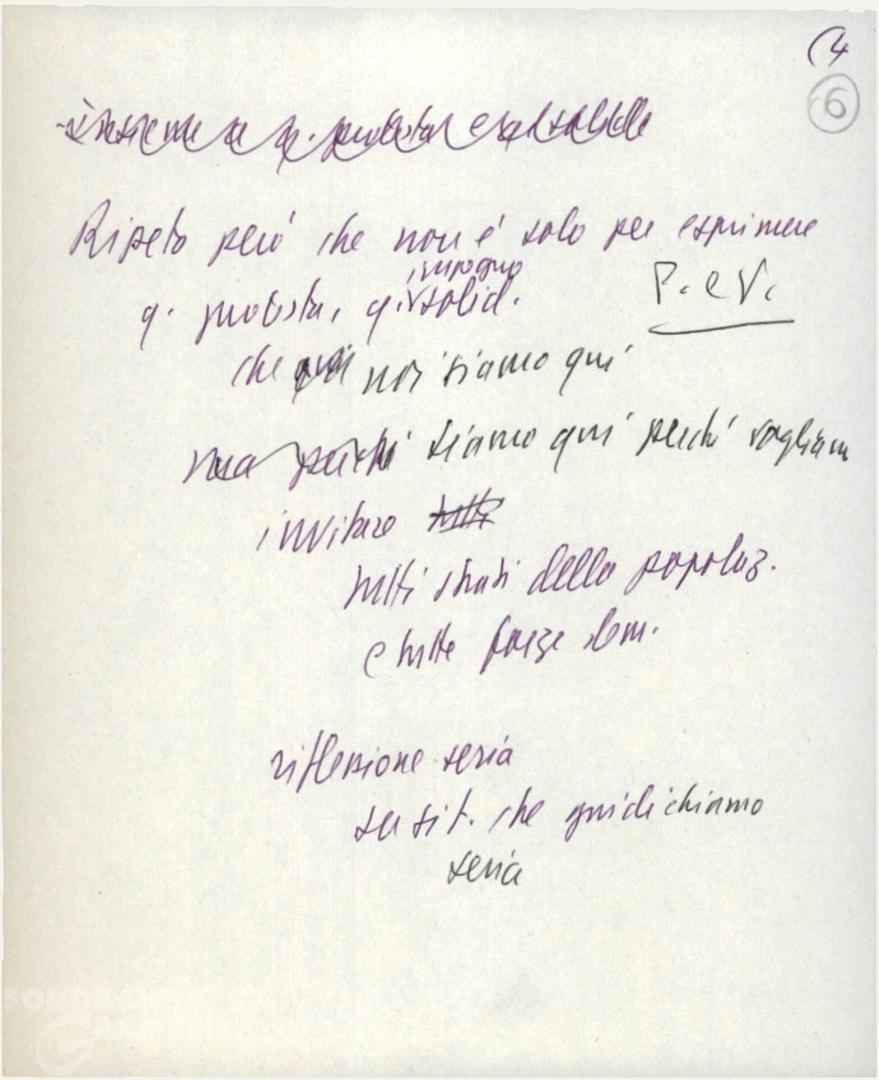 (4
6
insieme a q. protesta e solid
Ripeto però che non è solo per esprimere
impegno
q. protesta, q. solid. P. e V.
che noi siamo qui
ma perché siamo qui perché vogliam
invitare tutti
tutti strati della popolaz.
e tutte forze dem.
riflessione seria
su sit. che giudichiamo
seria
FONDAZIONE
G